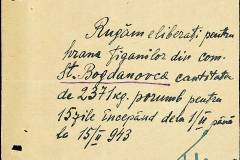 Rugăm eliberați pentru
hrana Țiganilor din com
St. Bogdanovca cantitatea
de 2371 kg. porumb pentru
15 zile începând dela 1/II până
la 15/II 943